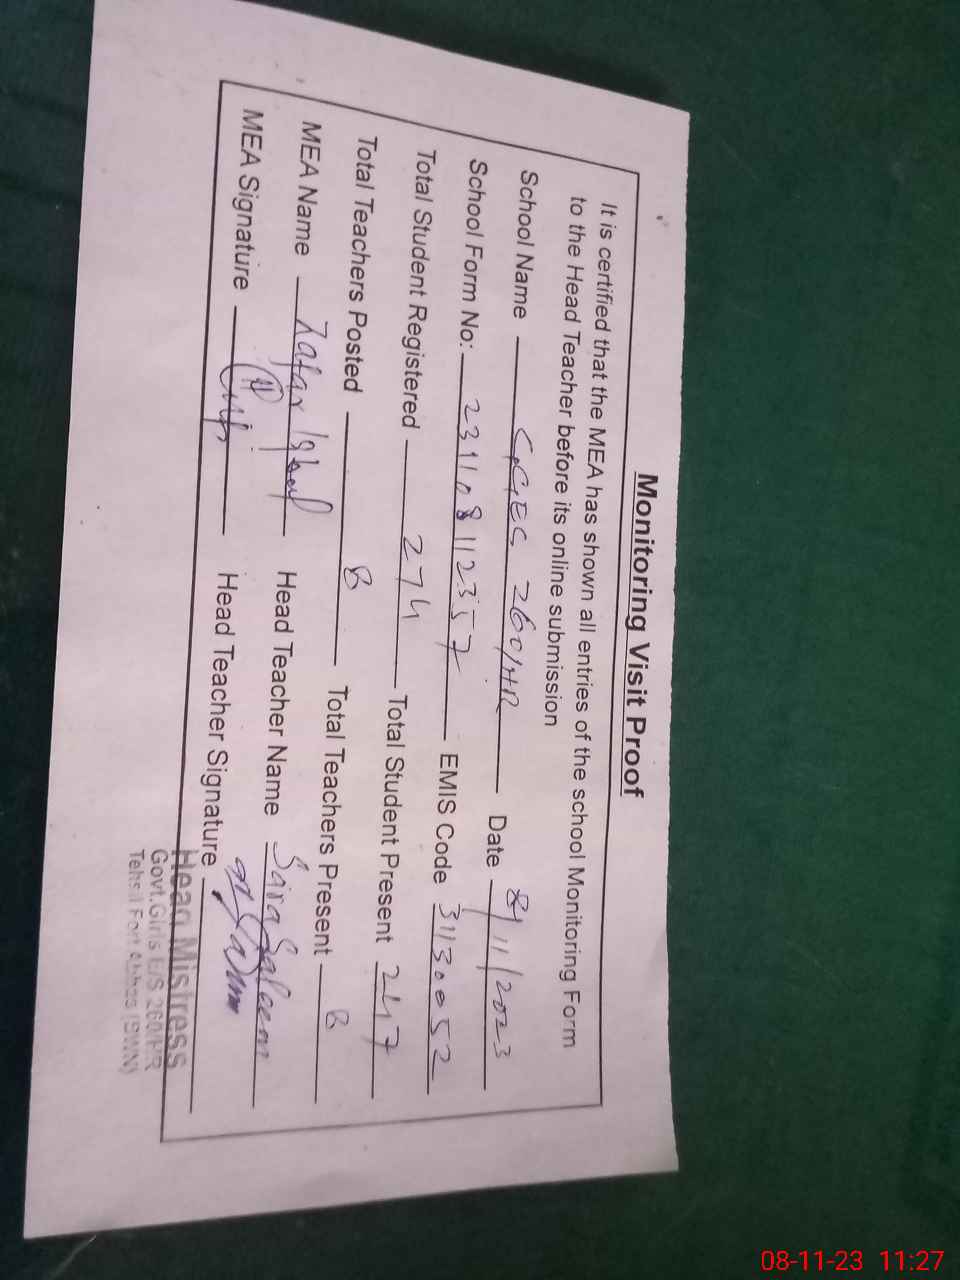 Monitoring Visit Proof
It is certified that the MEA has shown all entries of the school Monitoring Form
to the Head Teacher before its online submission
School Name GGES 260/HR Date 8/11/2023
School Form No: 231108112357 EMIS Code 31130052
Total Student Registered 274 Total Student Present 247
Total Teachers Posted 8 Total Teachers Present 8
MEA Name Zafar Iqbal Head Teacher Name Saira Saleem
MEA Signature Head Teacher Signature
Head Mistress
Govt.Girls E/S 260/HR
Tehsil Fort Abbas (BWN)
08-11-23 11:27